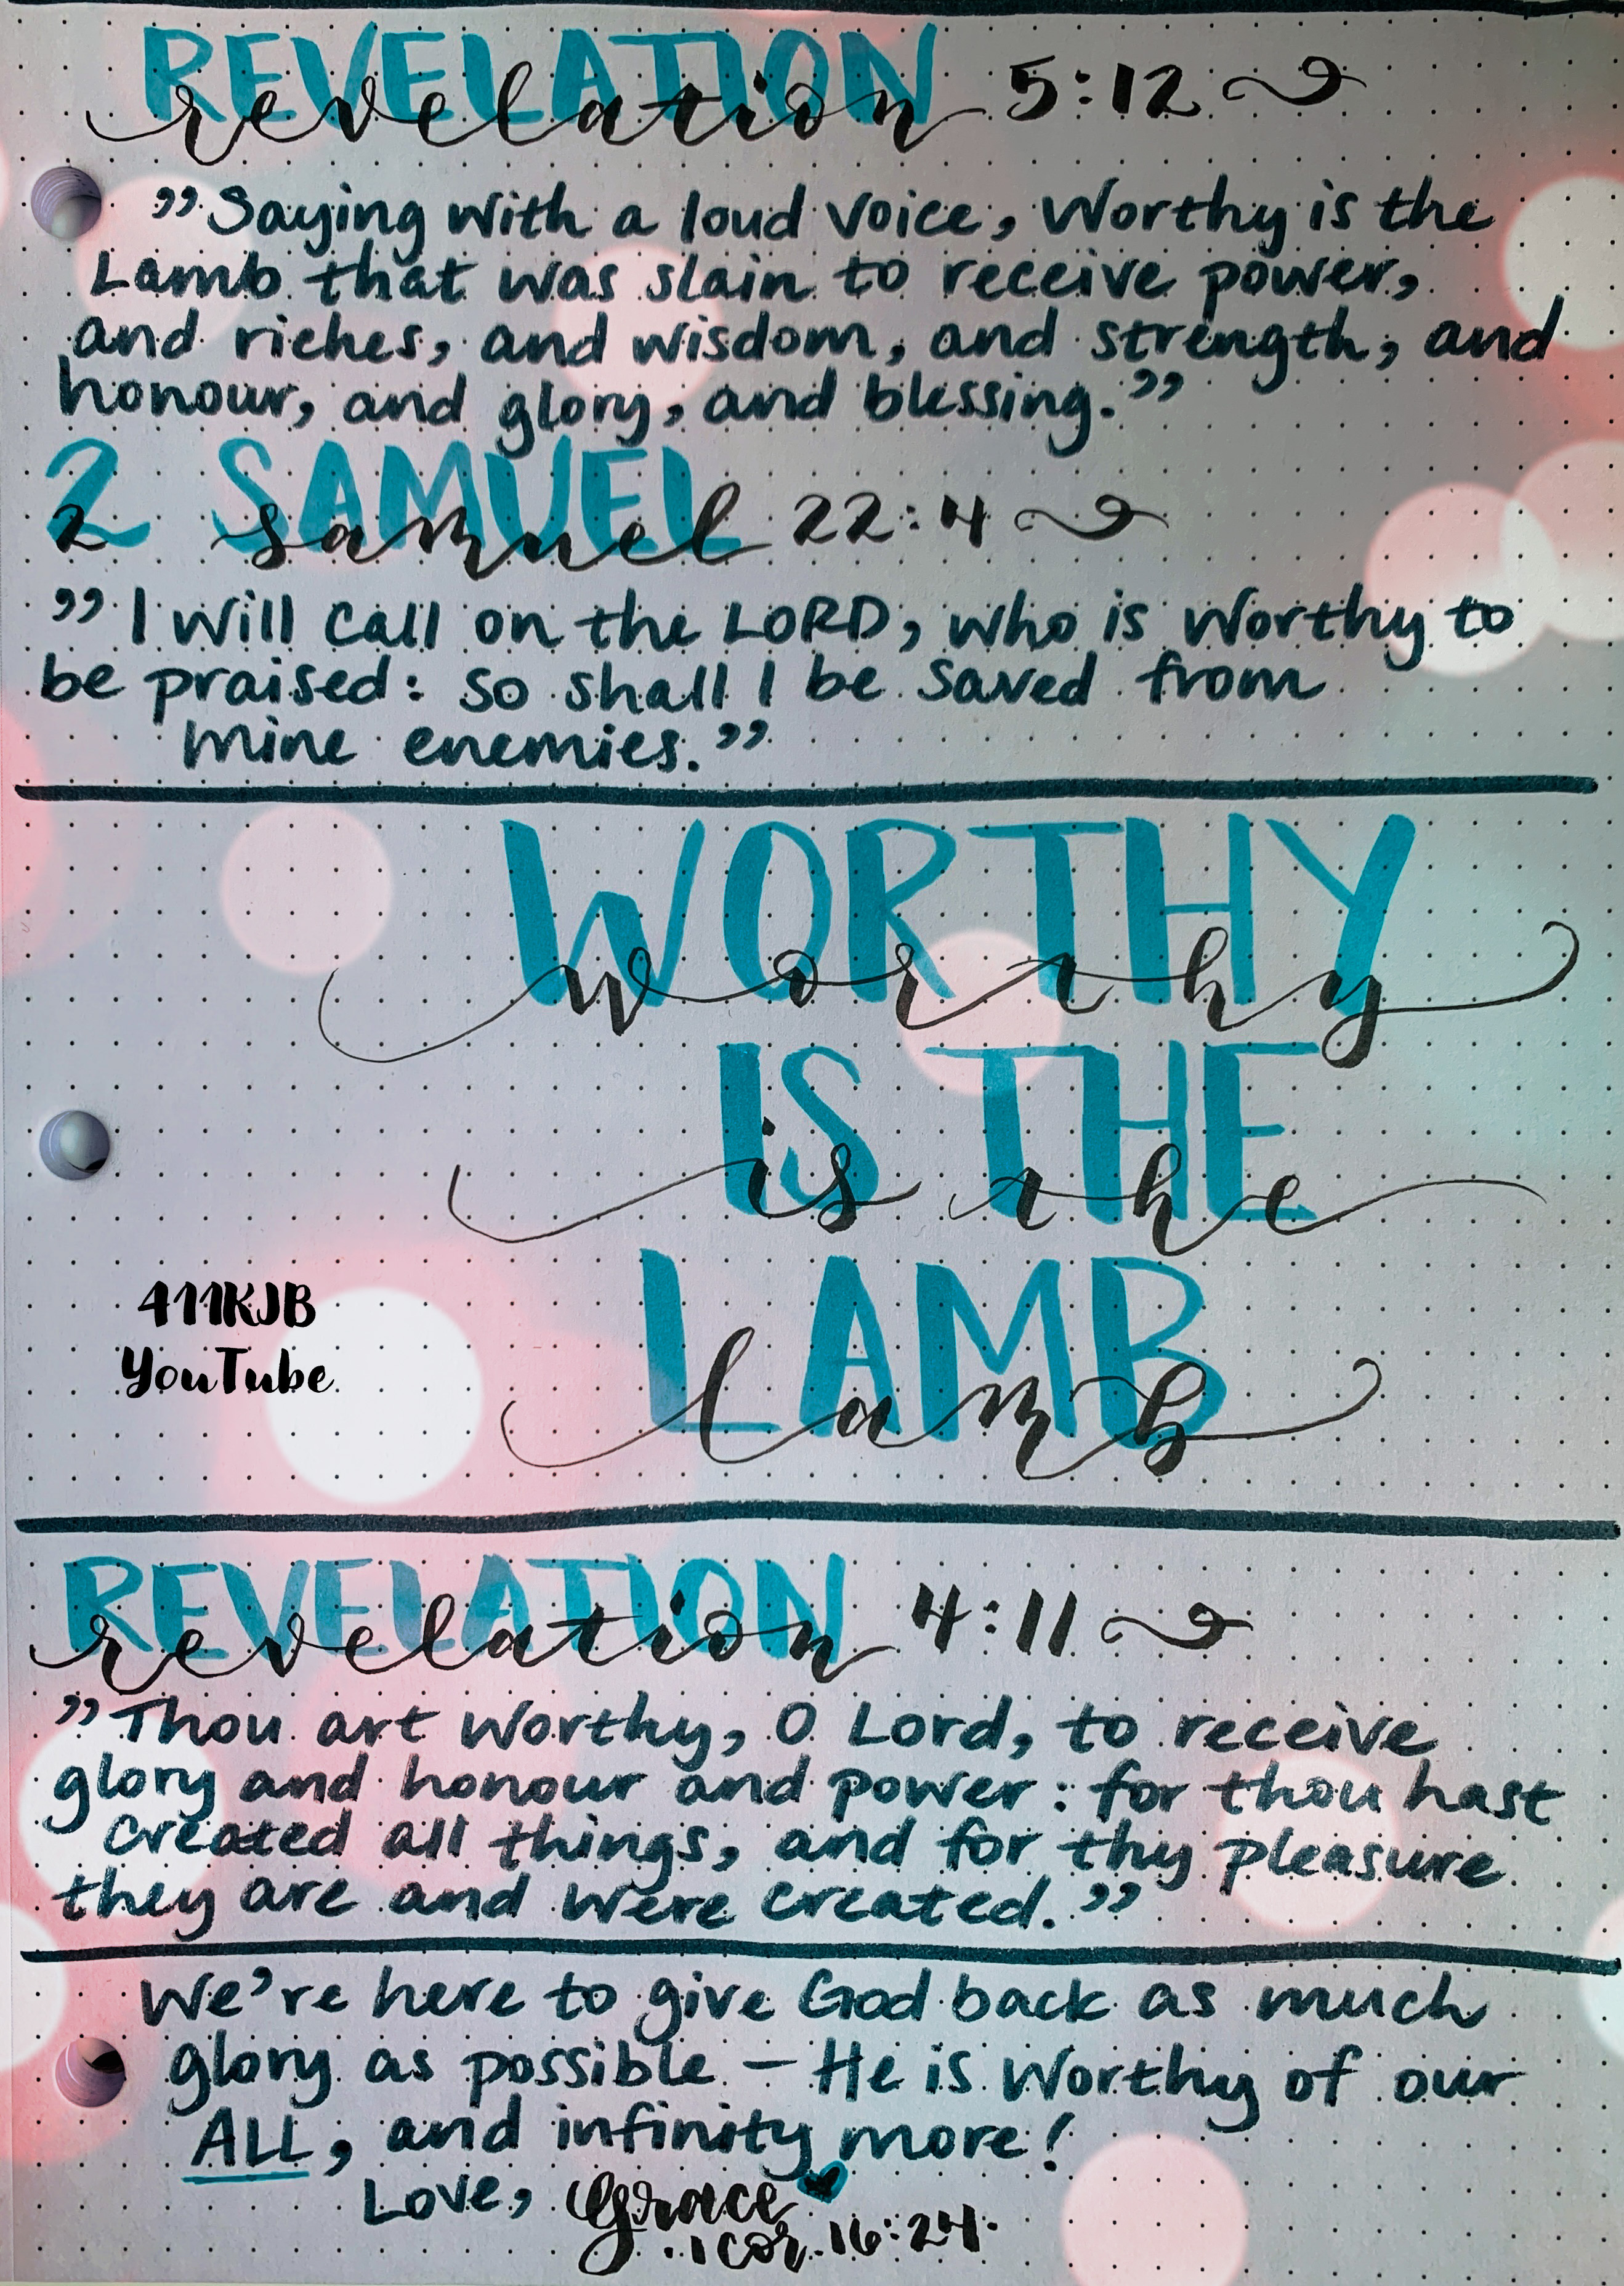 REVELATION
revelation 5:12
”Saying with a loud voice, Worthy is the
Lamb that was slain to receive power,
and riches, and wisdom, and strength, and
honour, and glory, and blessing.”
2 SAMUEL
2 samuel 22:4
”I will call on the LORD, who is worthy to
be praised: so shall I be saved from
mine enemies.”
WORTHY
worthy
IS THE
is the
LAMB
lamb
411KJB
YouTube
REVELATION
revelation 4:11
”Thou art worthy, O Lord, to receive
glory and honour and power: for thou hast
created all things, and for thy pleasure
they are and were created.”
We're here to give God back as much
glory as possible — He is worthy of our
ALL, and infinity more!
Love, Grace
1 Cor. 16:24